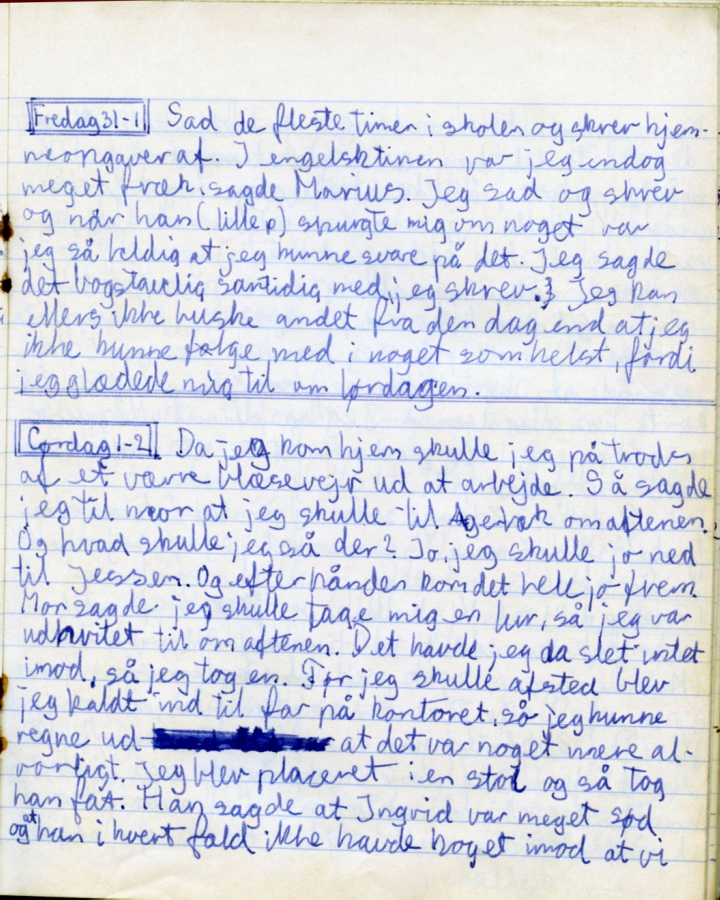 Fredag 31-1 Sad de fleste timer i skolen og skrev hjem-
neopgaver af. I engelsktimen var jeg endog
meget fræk, sagde Marius. Jeg sad og skrev
og når han (lille p) spurgte mig om noget var
jeg så heldig at jeg kunne svare på det. Jeg sagde
det bogstavelig samtidig med jeg skrev. Jeg kan
ellers ikke huske andet fra den dag end at jeg
ikke kunne følge med i noget som helst, fordi
jeg glædede mig til om lørdagen.
Lørdag 1-2 Da jeg kom hjem skulle jeg på trods
af et værre blæsevejr ud at arbejde. Så sagde
jeg til mor at jeg skulle til Agerbæk om aftenen.
Og hvad skulle jeg så der? Jo, jeg skulle jo ned
til Jessen. Og efterhånden kom det hele jo frem.
Mor sagde jeg skulle tage mig en lur, så jeg var
udhvilet til om aftenen. Det havde jeg da slet intet
imod, så jeg tog en. Før jeg skulle afsted blev
jeg kaldt ind til far på kontoret, så jeg kunne
regne ud at det var noget mere al-
vorligt. Jeg blev placeret i en stol og så tog
han fat. Han sagde at Ingrid var meget sød
og at han i hvert fald ikke havde noget imod at vi